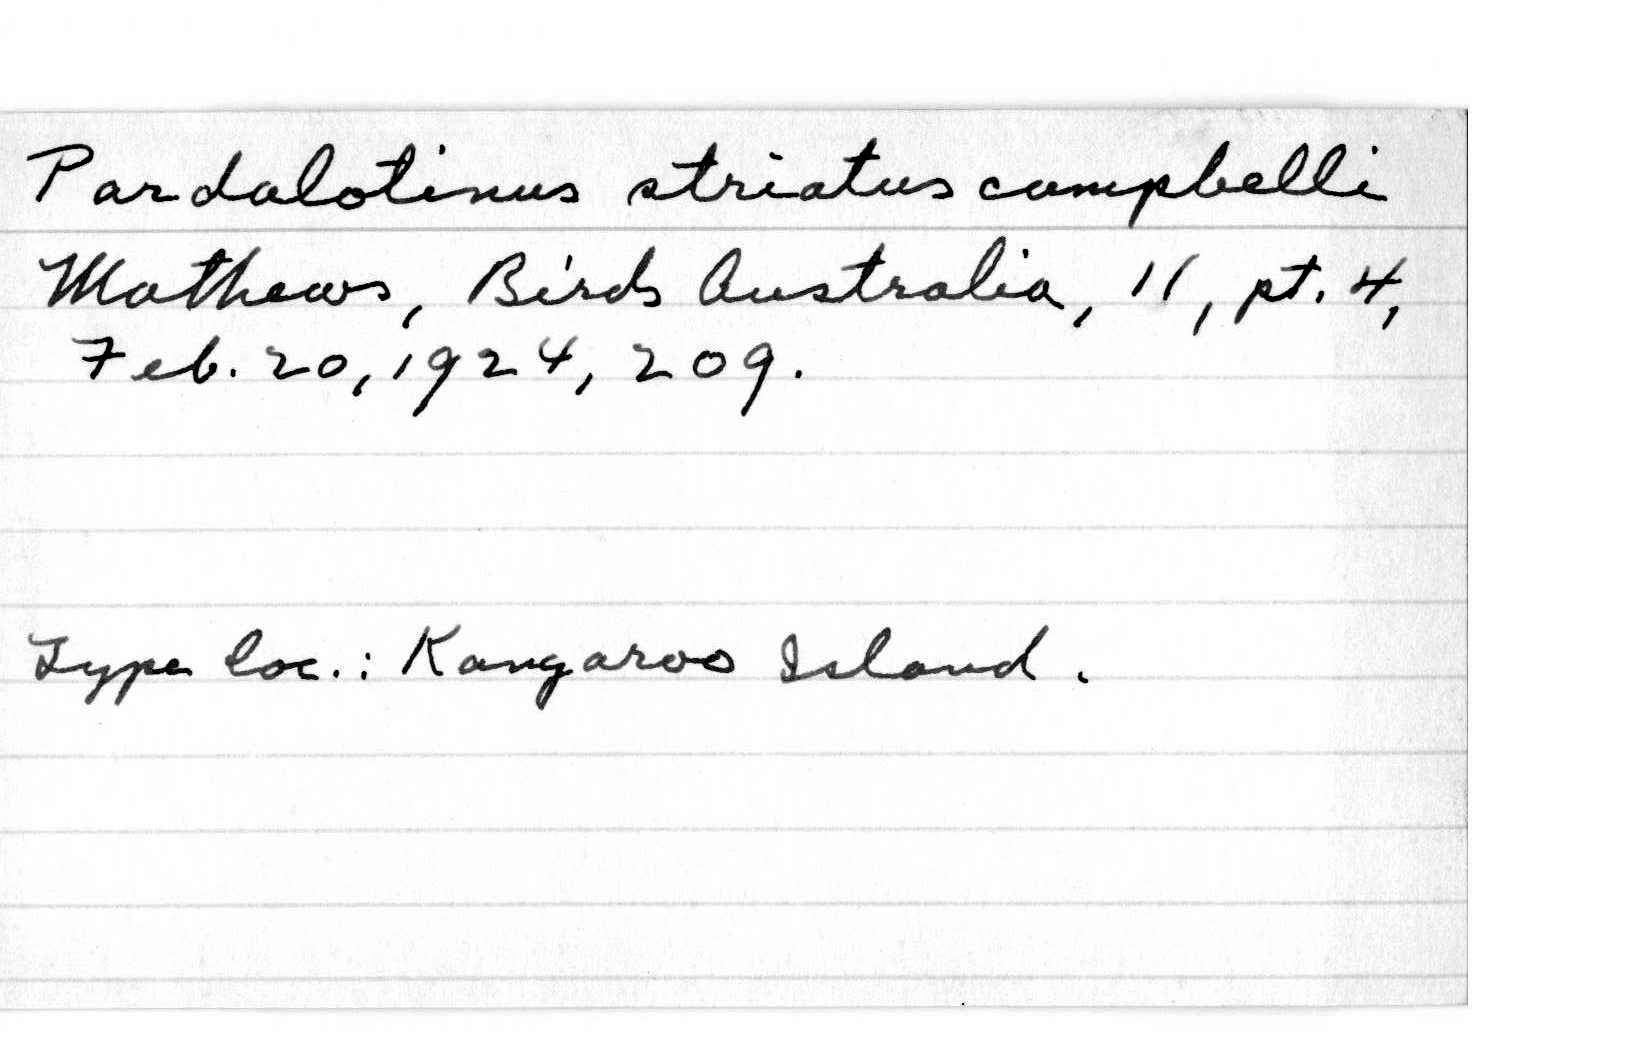 Pardalotinus striatus campbelli
Mathews, Birds Australia, 11, pt. 4,
Feb. 20, 1924, 209.
Type loc.: Kangaroo Island.